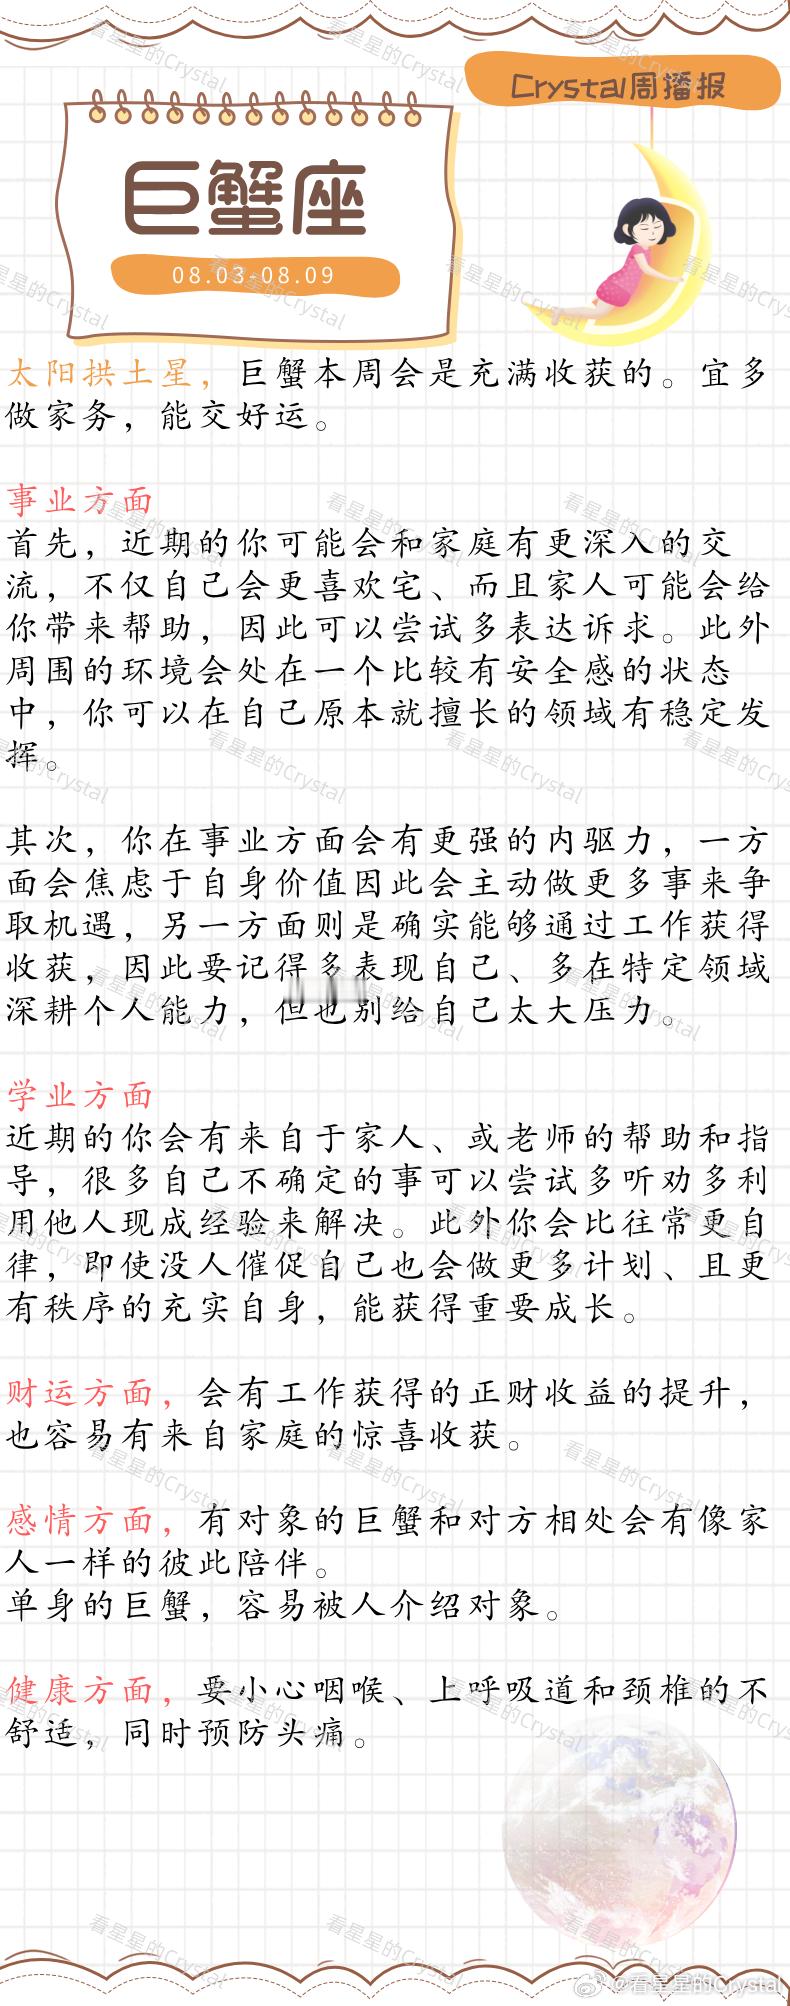 Crystal周播报
巨蟹座
08.03-08.09
太阳拱土星，巨蟹本周会是充满收获的。宜多
做家务，能交好运。
事业方面
首先，近期的你可能会和家庭有更深入的交
流，不仅自己会更喜欢宅、而且家人可能会给
你带来帮助，因此可以尝试多表达诉求。此外
周围的环境会处在一个比较有安全感的状态
中，你可以在自己原本就擅长的领域有稳定发
挥。
其次，你在事业方面会有更强的内驱力，一方
面会焦虑于自身价值因此会主动做更多事来争
取机遇，另一方面则是确实能够通过工作获得
收获，因此要记得多表现自己、多在特定领域
深耕个人能力，但也别给自己太大压力。
学业方面
近期的你会有来自于家人、或老师的帮助和指
导，很多自己不确定的事可以尝试多听劝多利
用他人现成经验来解决。此外你会比往常更自
律，即使没人催促自己也会做更多计划、且更
有秩序的充实自身，能获得重要成长。
财运方面，会有工作获得的正财收益的提升，
也容易有来自家庭的惊喜收获。
感情方面，有对象的巨蟹和对方相处会有像家
人一样的彼此陪伴。
单身的巨蟹，容易被人介绍对象。
健康方面，要小心咽喉、上呼吸道和颈椎的不
舒适，同时预防头痛。
@看星星的Crystal